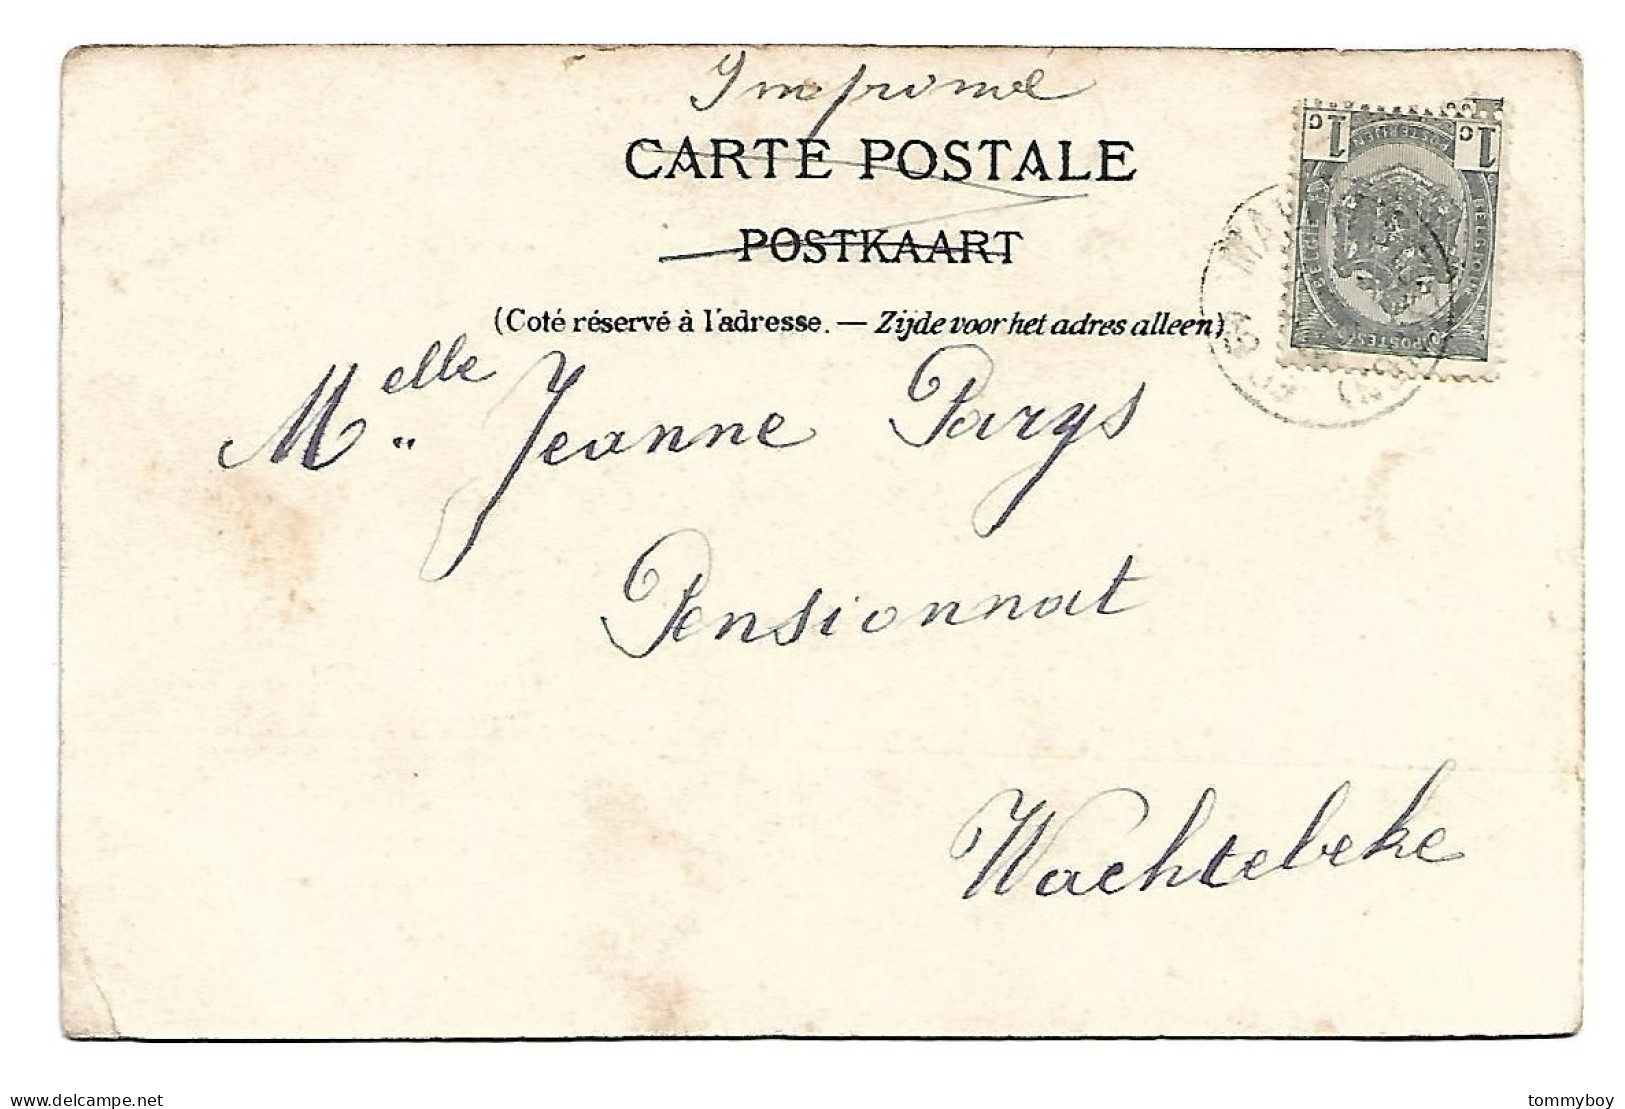 Imprimé
CARTE POSTALE
POSTKAART
(Coté réservé à l'adresse. — Zijde voor het adres alleen)
Melle Jeanne Parys
Pensionnat
Wachtebeke
1c 1c
BELGIQUE BELGIE
POSTES POSTERIJEN
delcampe.net
tommyboy